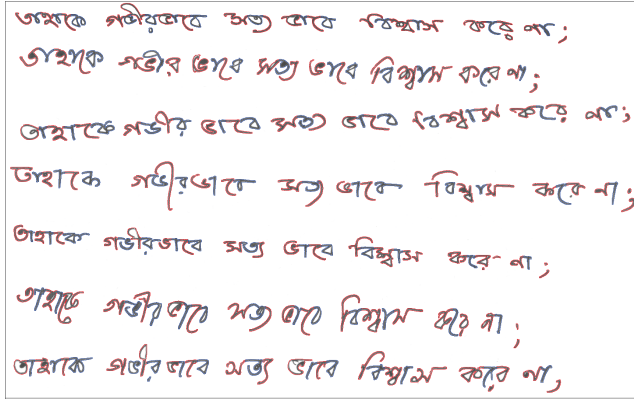 তাহাকে গভীরভাবে সত্য ভাবে বিশ্বাস করে না;
তাহাকে গভীর ভাবে সত্য ভাবে বিশ্বাস করে না;
তাহাকে গভীর ভাবে সত্য ভাবে বিশ্বাস করে না;
তাহাকে গভীরভাবে সত্য ভাবে বিশ্বাস করে না;
তাহাকে গভীরভাবে সত্য ভাবে বিশ্বাস করে না;
তাহাকে গভীর ভাবে সত্য ভাবে বিশ্বাস করে না;
তাহাকে গভীরভাবে সত্য ভাবে বিশ্বাস করে না,